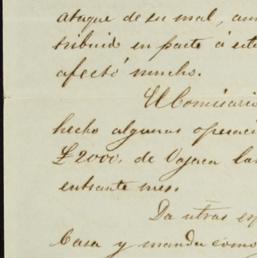 ataque de su mal, aun
tribuido en parte á esta
afectó mucho.
El Comisario
hecho algunas operaci
£2000. de Oajaca
entrante mes.
Da utras
Casa y mandu como